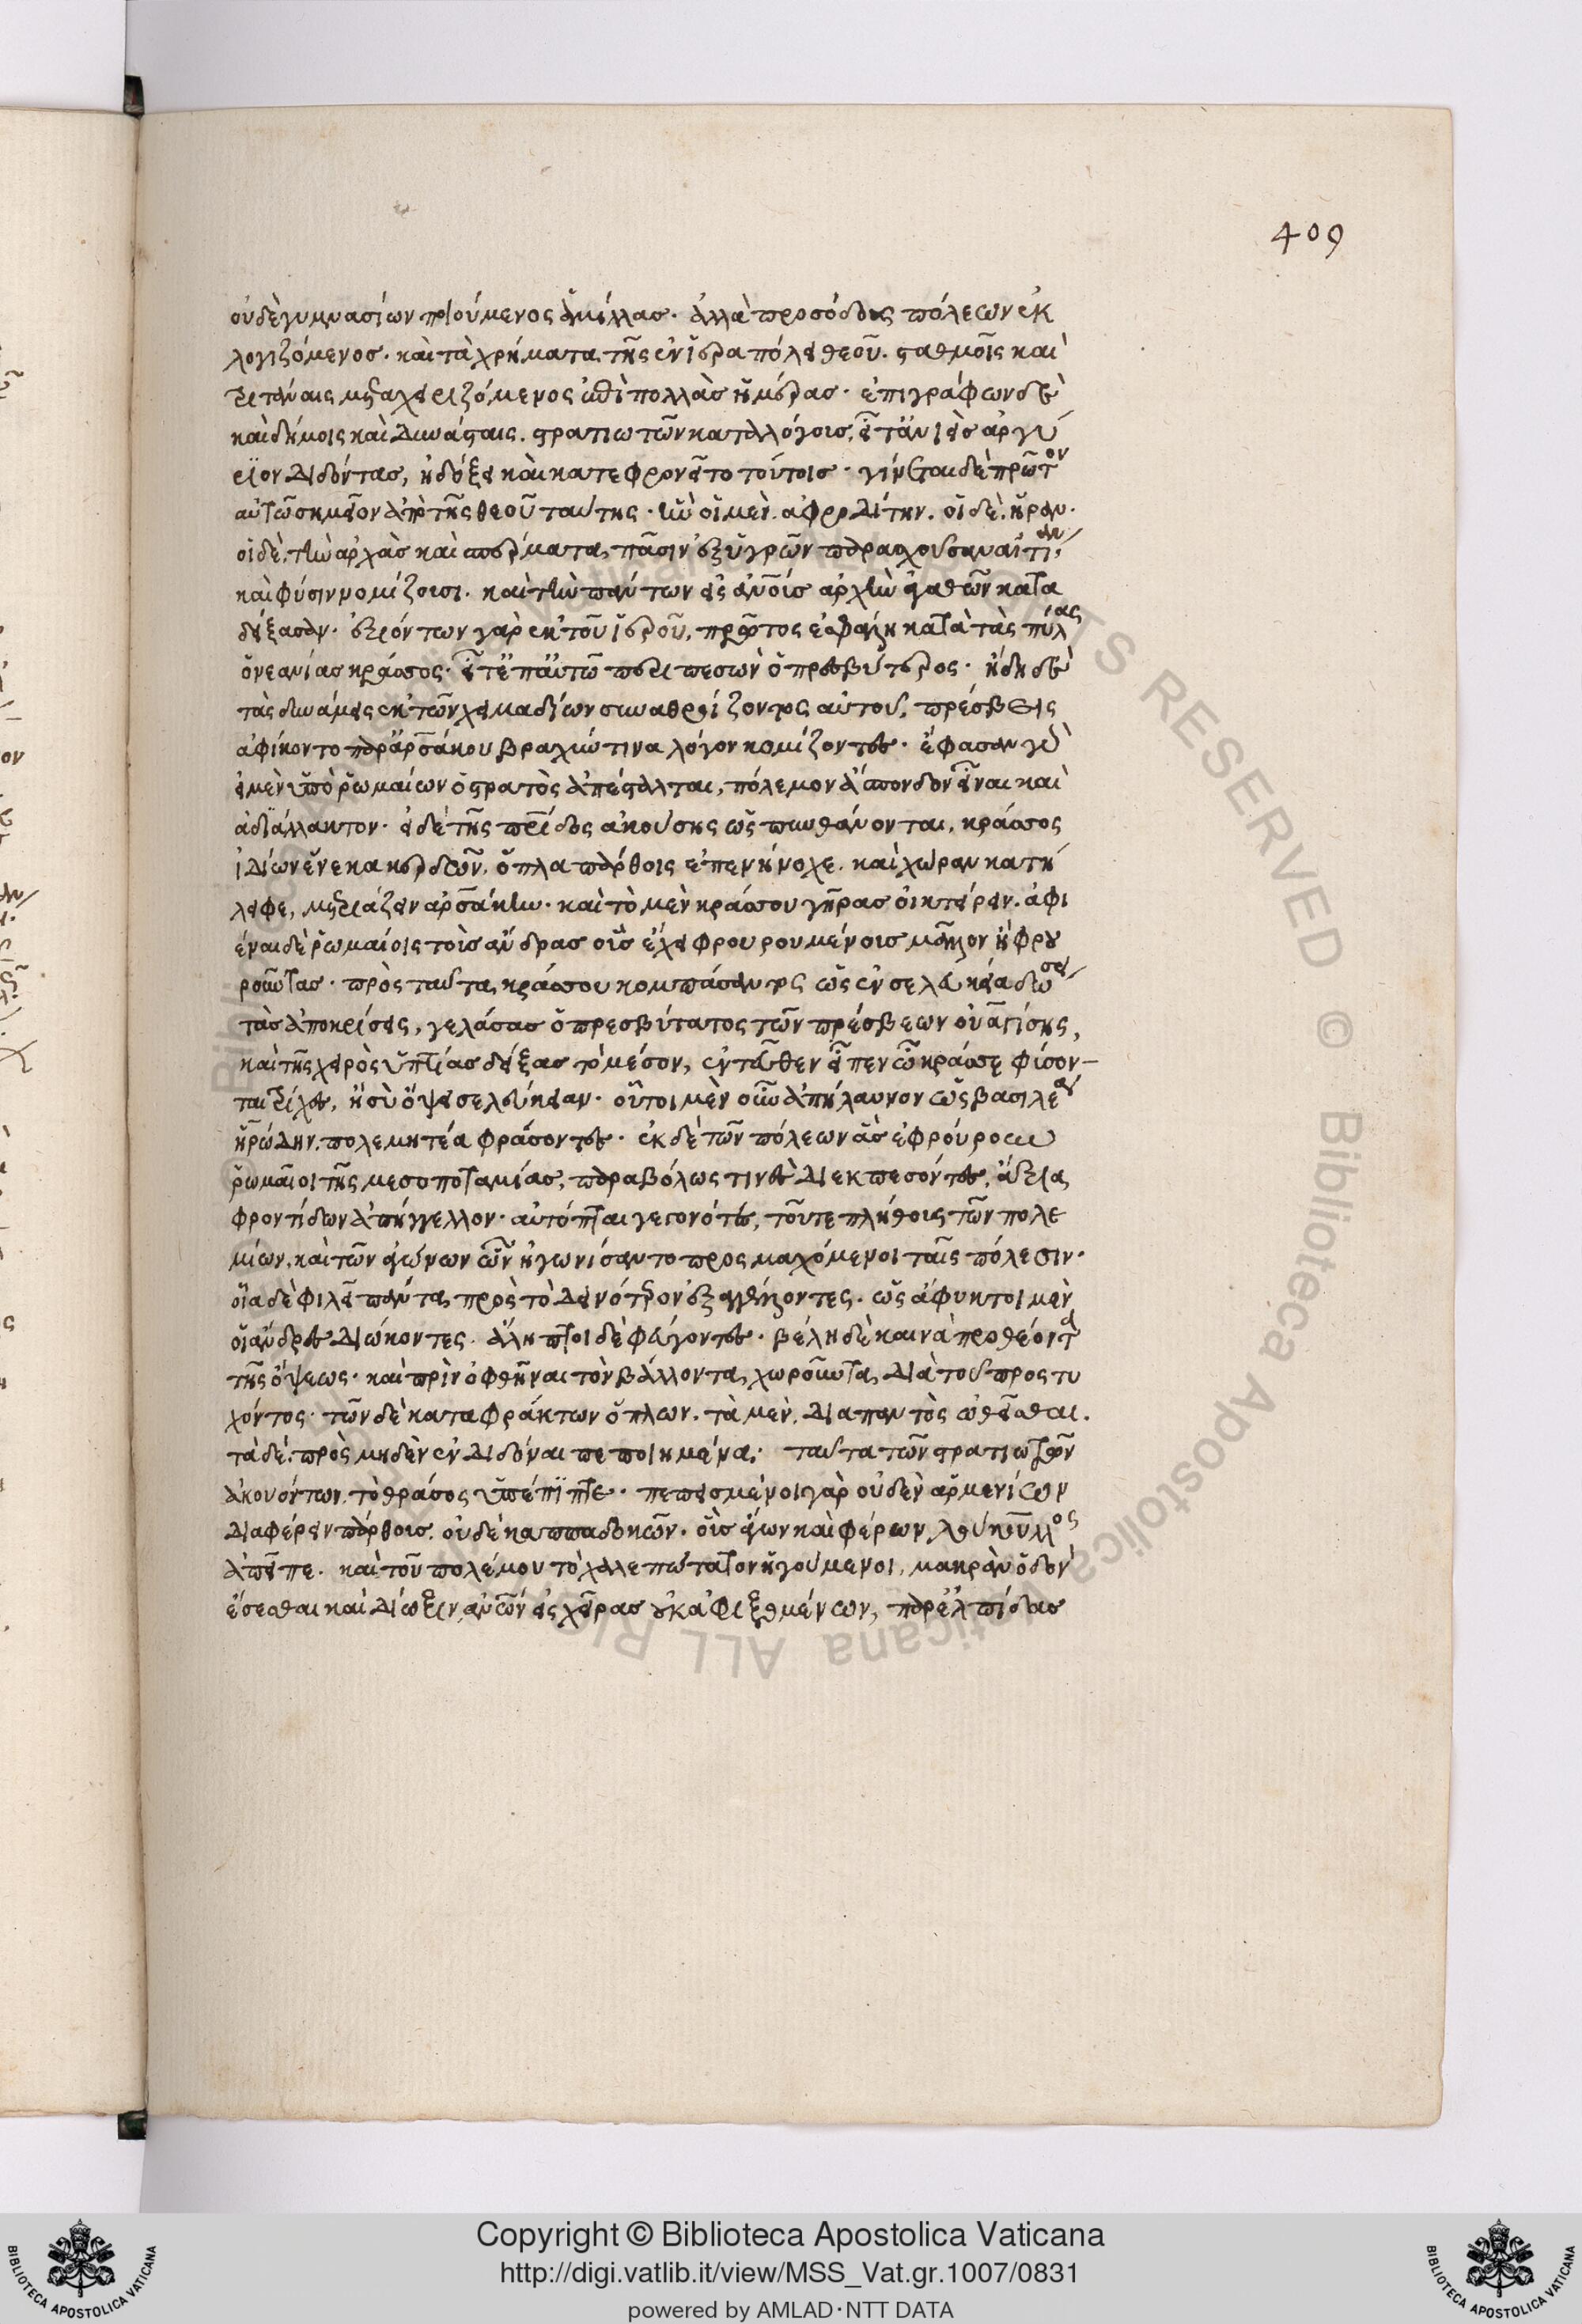 409
οὐδὲ γυμνασίων ποιούμενος ἁμίλλας· ἀλλὰ προσόδους πόλεων ἐκ
λογιζόμενος· καὶ τὰ χρήματα τῆς ἐν ἱερᾷ πόλει θεοῦ. σταθμοῖς καὶ
τρυτάναις μεταχειριζόμενος ἐπὶ πολλὰς ἡμέρας· ἐπιγράφων δὲ
καὶ δήμοις καὶ δυνάσταις. στρατιωτῶν καταλόγους, εἶτ' ἀνιεὶς ἀργύ
ριον διδόντας, ἠδόξει καὶ κατεφρονεῖτο τούτοις· γίνεται δὲ πρῶτον
αὐτῷ σημεῖον ἀπὸ τῆς θεοῦ ταύτης· ἣν οἱ μὲν. ἀφροδίτην. οἱ δὲ. ἥραν.
οἱ δὲ. τὴν ἀρχὰς καὶ σπέρματα, πᾶσιν ἐξ ὑγρῶν παρασχοῦσαν αἰτίαν
καὶ φύσιν νομίζουσι. καὶ τὴν πάντων εἰς ἀνθρώποις ἀρχὴν ἀγαθῶν κατα
δείξασαν· ἐξιόντων γὰρ ἐκ τοῦ ἱεροῦ, πρῶτος ἐσφάλη κατὰ τὰς πύλας
ὁ νεανίας κράσσος· εἶτ' ἐπ' αὐτῷ περιπεσὼν ὁ πρεσβύτερος· ἤδη δὲ
τὰς δυνάμεις ἐκ τῶν χειμαδίων συναθροίζοντος αὐτοῦ, πρέσβεις
ἀφίκοντο παρ' ἀρσάκου βραχύν τινα λόγον κομίζοντες· ἔφασαν γὰρ
εἰ μὲν ὑπὸ ῥωμαίων ὁ στρατὸς ἀπέσταλται, πόλεμον ἄσπονδον εἶναι καὶ
ἀδιάλλακτον· εἰ δὲ τῆς πατρίδος ἀκούσης ὡς πυνθάνονται, κράσσος
ἰδίων ἕνεκα κερδῶν. ὅπλα πάρθοις ἐπενήνοχε. καὶ χώραν κατή
ληφε, μετριάζειν ἀρσάκην· καὶ τὸ μὲν κράσσου γῆρας οἰκτείρειν. ἀφι
έναι δὲ ῥωμαίοις τοὺς ἄνδρας οὓς ἔχει φρουρουμένους μᾶλλον ἢ φρου
ροῦντας· πρὸς ταῦτα, κράσσου κομπάσαντος ὡς ἐν σελευκείᾳ δώσει
τὰς ἀποκρίσεις, γελάσας ὁ πρεσβύτατος τῶν πρέσβεων οὐαγίσης,
καὶ τῆς χειρὸς ὑπτίας δείξας τὸ μέσον, ἐνταῦθεν εἶπεν ὦ κράσσε φύσον–
ται τρίχες, ἢ σὺ ὄψει σελεύκειαν· οὗτοι μὲν οὖν ἀπήλαυνον ὡς βασιλέα
ἡρώδην. πολεμητέα φράσοντες· ἐκ δὲ τῶν πόλεων ἃς ἐφρούρουν
ῥωμαῖοι τῆς μεσοποταμίας, παραβόλως τινὲς διεκπεσόντες, ἄξια
φροντίδων ἀπήγγελλον· αὐτόπται γεγονότες, τοῦ τε πλήθους τῶν πολε
μίων. καὶ τῶν ἀγώνων ὧν ἠγωνίσαντο προσμαχόμενοι ταῖς πόλεσιν·
οἷα δὲ φιλεῖ πάντα πρὸς τὸ δεινότερον ἐξαγγέλλοντες. ὡς ἄφυκτοι μὲν
οἱ ἄνδρες διώκοντες. ἄληπτοι δὲ φεύγοντες· βέλη δὲ καινὰ προθέοντα
τῆς ὄψεως· καὶ πρὶν ὀφθῆναι τὸν βάλλοντα, χωροῦντα, διὰ τοῦ προστυ
χόντος· τῶν δὲ καταφράκτων ὅπλων. τὰ μὲν. διαπαντὸς ὠθεῖσθαι.
τὰ δὲ. πρὸς μηδὲν ἐνδιδόναι πεποιημένα· ταῦτα τῶν στρατιωτῶν
ἀκουόντων. τὸ θράσος ὑπέπιπτε· πεπεισμένοι γὰρ οὐδὲν ἀρμενίων
διαφέρειν πάρθους. οὐδὲ καππαδοκῶν. οὓς ἄγων καὶ φέρων λεύκουλλος
ἀπεῖπε. καὶ τοῦ πολέμου τὸ χαλεπώτατον ἡγούμενοι, μακρὰν ὁδὸν
ἔσεσθαι καὶ δίωξιν, ἀνθρώπων εἰς χεῖρας οὐκ ἀφιξομένων, παρ' ἐλπίδας
Copyright © Biblioteca Apostolica Vaticana
http://digi.vatlib.it/view/MSS_Vat.gr.1007/0831
powered by AMLAD·NTT DATA
BIBLIOTECA APOSTOLICA VATICANA
BIBLIOTECA APOSTOLICA VATICANA